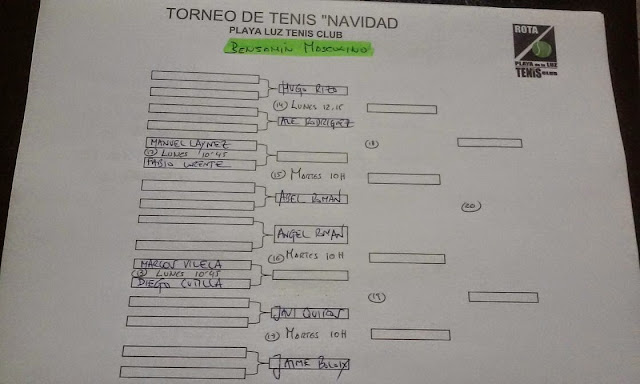 TORNEO DE TENIS "NAVIDAD
PLAYA LUZ TENIS CLUB
BENJAMIN MASCULINO
ROTA
PLAYA DE LA LUZ
TENIS CLUB
HUGO RIZO
(14) LUNES 12,15
ALE RODRIGUEZ
MANUEL LAYNEZ
(12) LUNES 10'45
PABLO
(18)
(15) MARTES 10H
ABEL ROMÁN
(20)
ANGEL ROMÁN
(16) MARTES 10H
MARCOS VILELA
(13) LUNES 10'45
DIEGO
(19)
JAVI QUIROS
(17) MARTES 10H
JAIME